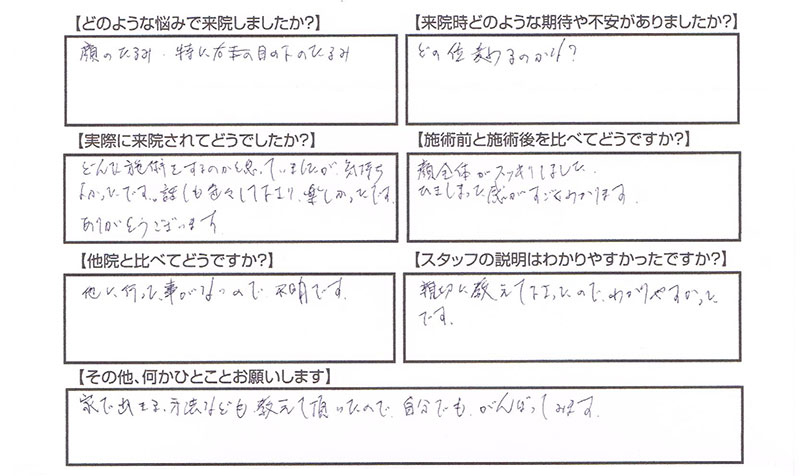 【どのような悩みで来院しましたか?】
顔のたるみ・特に右の目の下のたるみ
【来院時どのような期待や不安がありましたか?】
どの位変わるのか?
【実際に来院されてどうでしたか?】
どんな施術をするのかと思っていましたが、気持ち
よかったです。話しも色々して下さり、楽しかったです。
ありがとうございます
【施術前と施術後を比べてどうですか?】
顔全体がスッキリしました。
ひきしまった感がすごくわかります。
【他院と比べてどうですか?】
他に行った事がないので、不明です。
【スタッフの説明はわかりやすかったですか?】
親切に教えて下さったので、わかりやすかった
です。
【その他、何かひとことお願いします】
家で出来る方法なども教えて頂いたので、自分でも、がんばってみます。